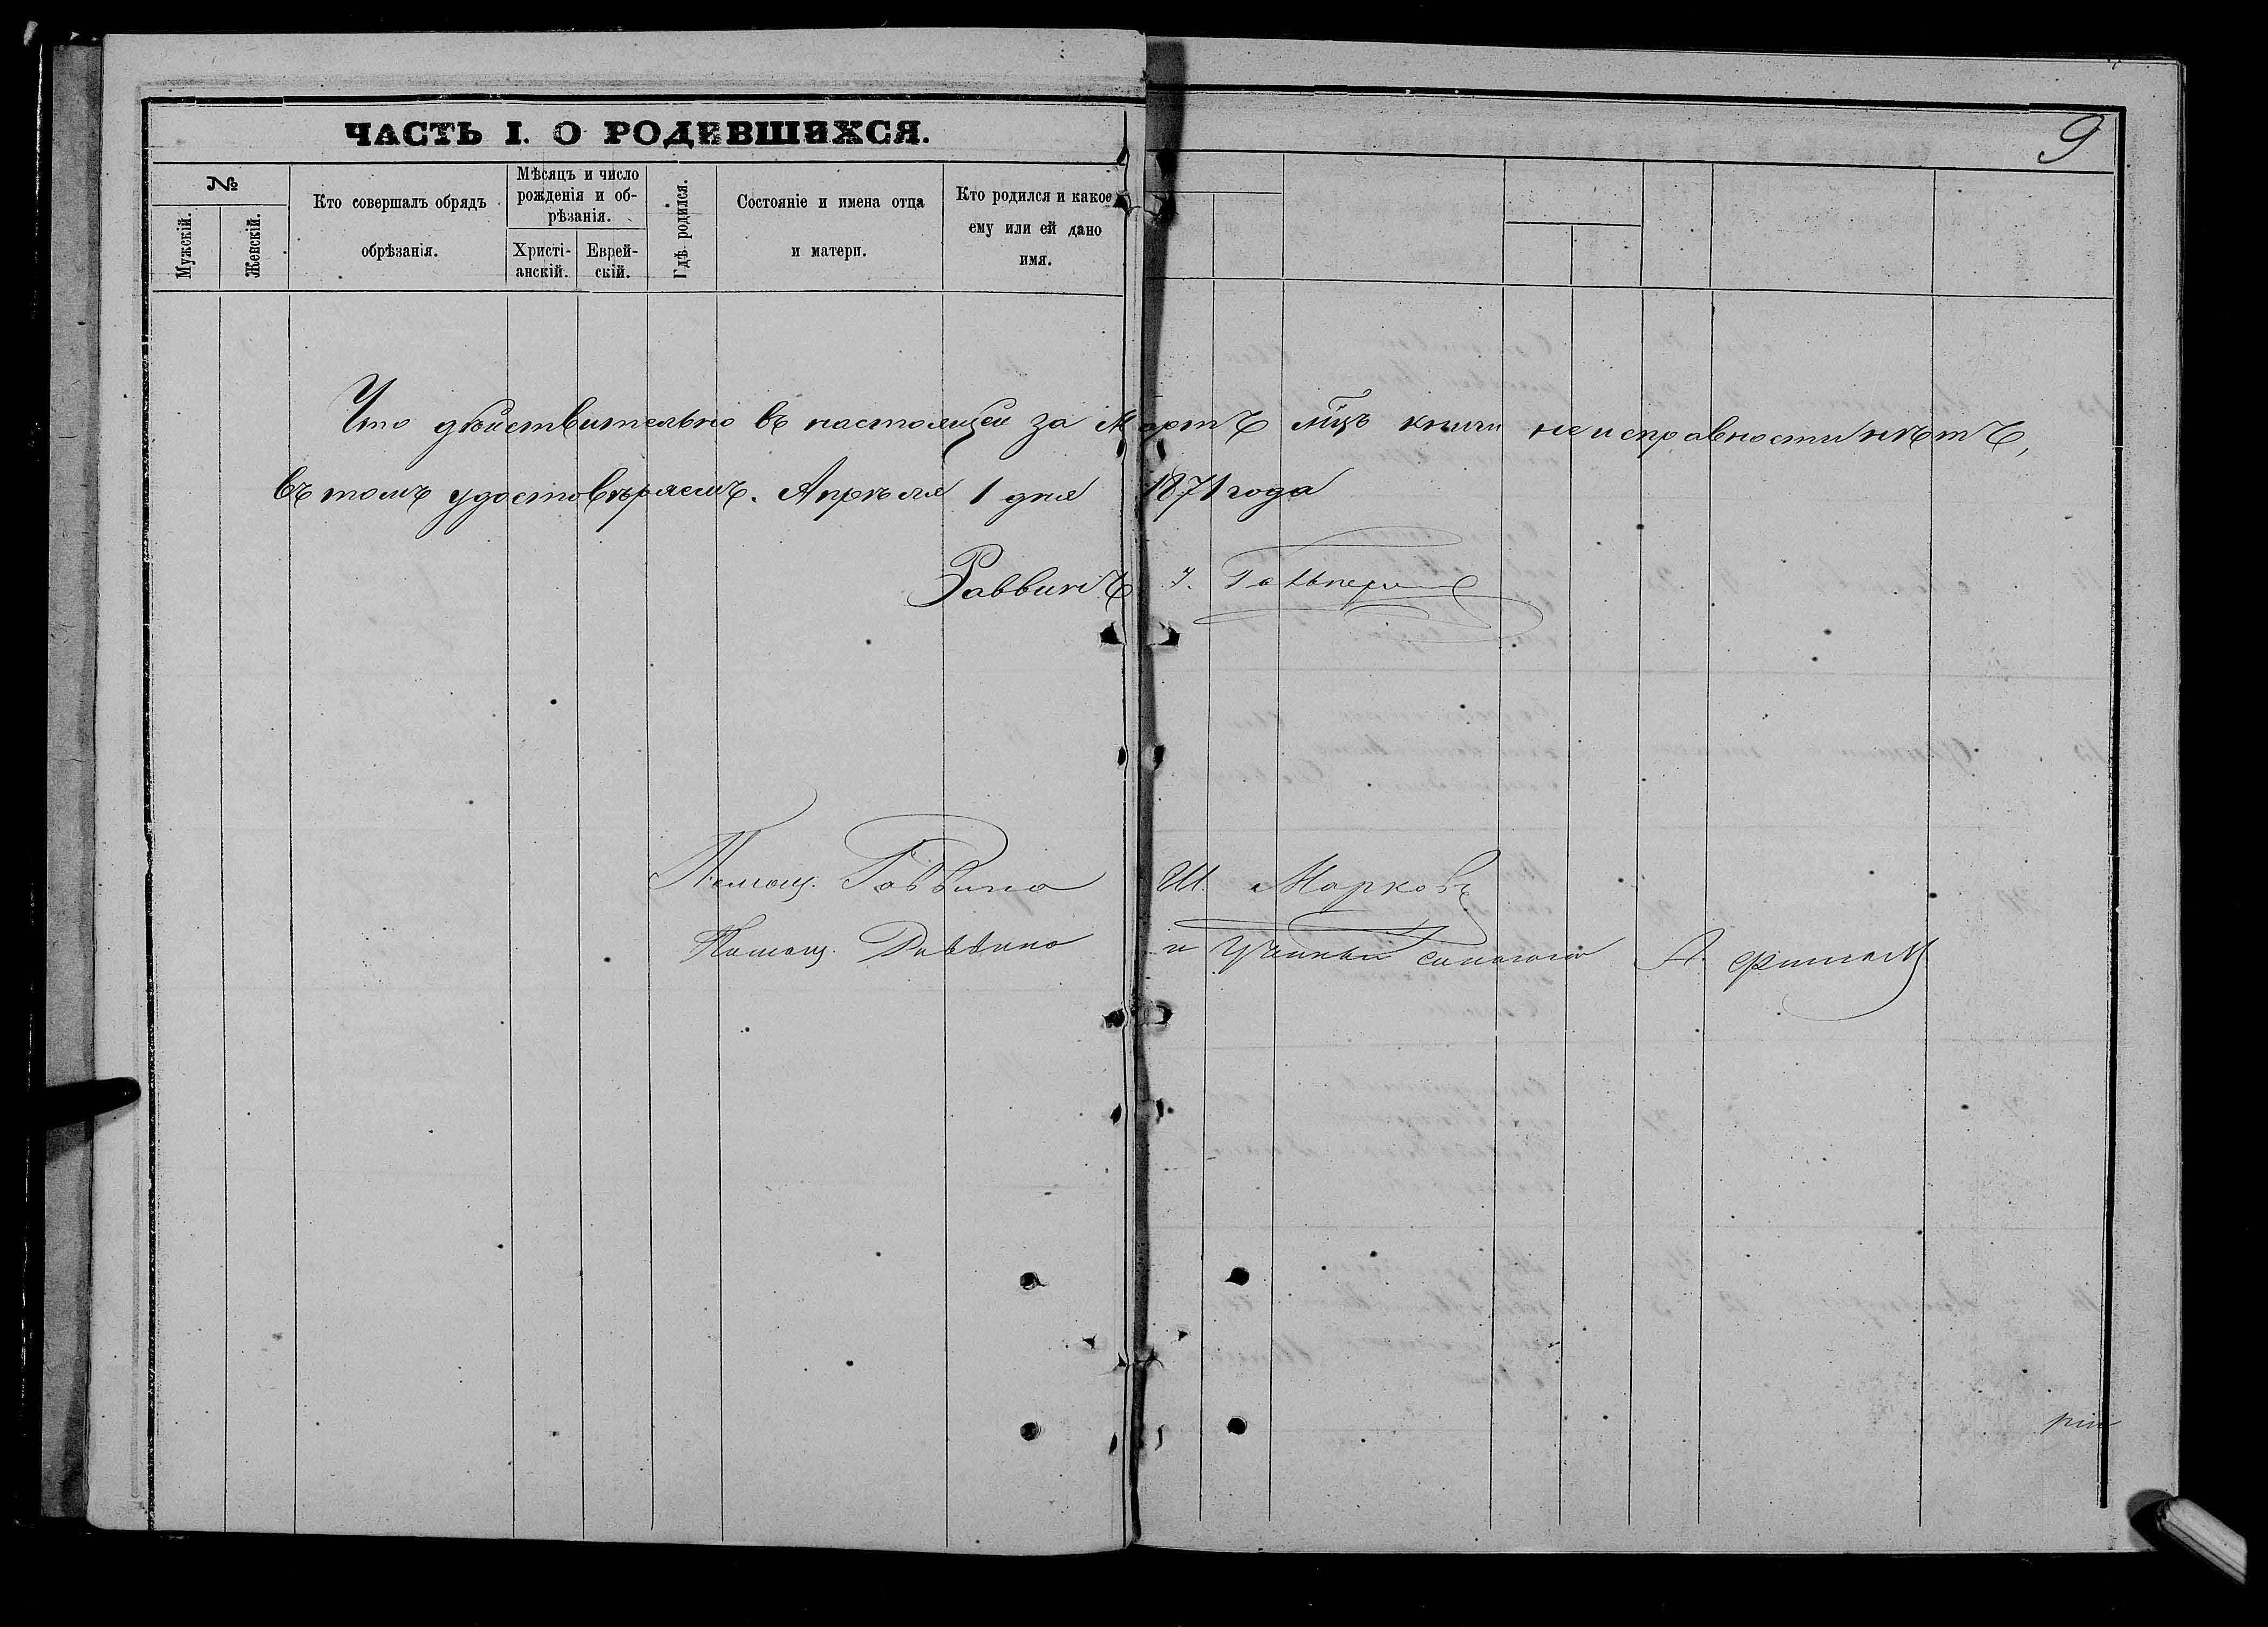 ЧАСТЬ I. О РОДИВШИХСЯ.
9
№
Мужскій.
Женскій.
Кто совершалъ обрядъ
обрѣзанія.
Мѣсяцъ и число
рожденія и об-
рѣзанія.
Христі-
анскій.
Еврей-
скій.
Гдѣ родился.
Состояніе и имена отца
и матери.
Кто родился и какое
ему или ей дано
имя.
Что дѣйствительно въ настоящей за Мартъ мцъ книги неисправности нѣтъ,
въ томъ удостовѣряемъ. Апрѣля 1 дня 1871 года
Раввинъ
Помощ. Раввина Ш. Марковъ
Помощ. Раввина и Ученый